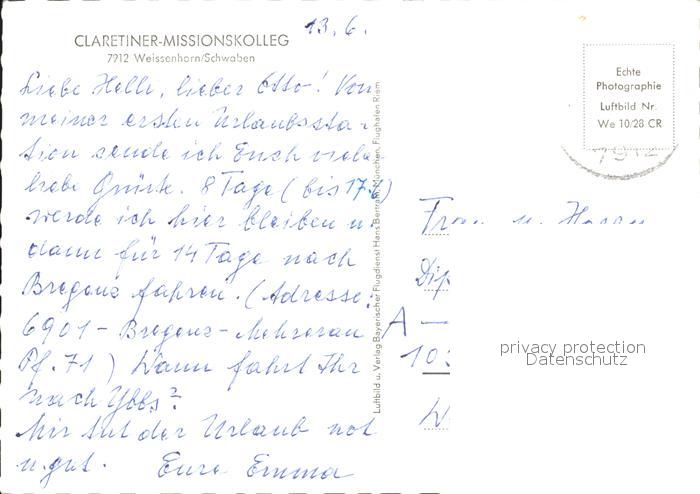 13. 6.
CLARETINER-MISSIONSKOLLEG
7912 Weissenhorn/Schwaben
Liebe Helli, lieber Otto! Von
meiner ersten Urlaubssta-
tion sende ich Euch viele
liebe Grüße. 8 Tage (bis 17.6.)
werde ich hier bleiben u.
dann für 14 Tage nach
Bregenz fahren. (Adresse:
6901 - Bregenz - Mehrerau
Pf. 71) Wann fahrt Ihr
nach Ybbs?
Mir tut der Urlaub not
u. gut. Eure Emma
Luftbild u. Verlag Bayerischer Flugdienst Hans Bertram, München, Flughafen Riem
Echte
Photographie
Luftbild Nr.
We 10/28 CR
7912
Frau u. Herrn
Dip
A —
10
W
privacy protection
Datenschutz